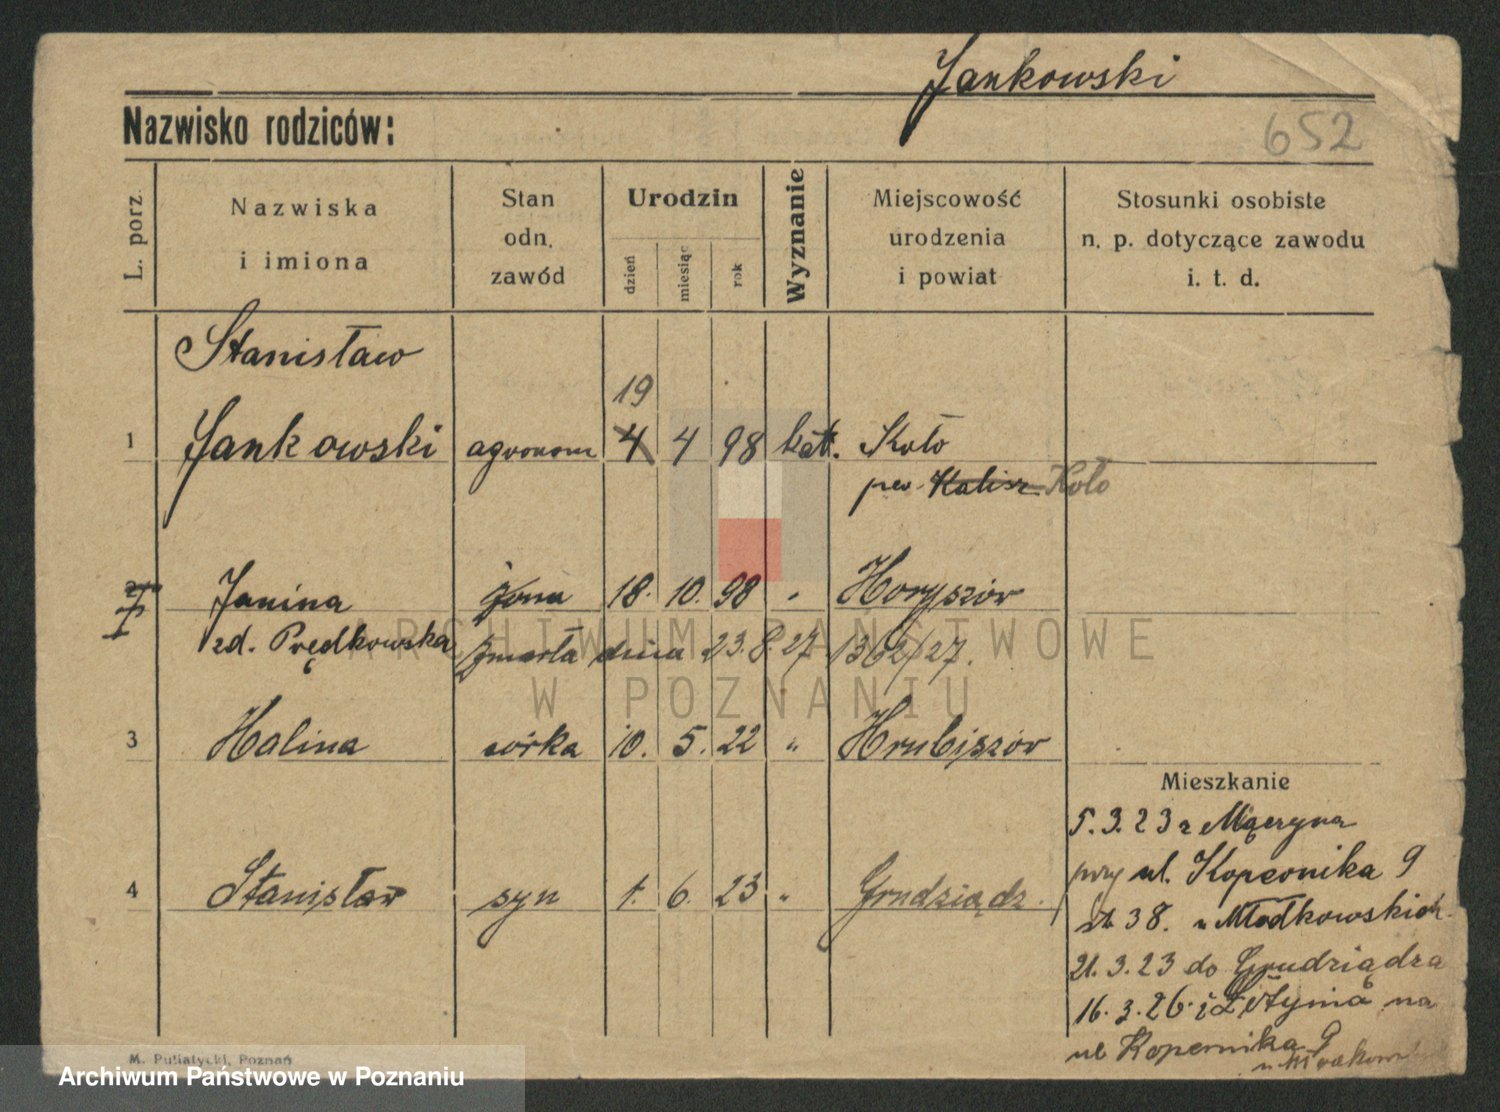 Jankowski
Nazwisko rodziców:
652
L. porz.
Nazwiska
i imiona
Stan
odn.
zawód
Urodzin
dzień
miesiąc
rok
Wyznanie
Miejscowość
urodzenia
i powiat
Stosunki osobiste
n. p. dotyczące zawodu
i. t. d.
Stanisław
19
1 Jankowski agronom 4 4 98 kat. Koło
pow. Kalisz Koło
2 Janina żona 18. 10. 98 " Horyszów
zd. Prędkowska zmarła dnia 23.8.27 1362/27.
3 Halina córka 10. 5. 22 " Hrubiszów
Mieszkanie
5.3.23 z
przy ul. Kopernika 9
4 Stanisław syn 1. 6. 23 " Grudziądz.
38. u Młodkowskich
21.3.23 do Grudziądza
16.3.26 z na
ul Kopernika 9
M. Puliatycki, Poznań
ARCHIWUM PAŃSTWOWE
W POZNANIU
Archiwum Państwowe w Poznaniu